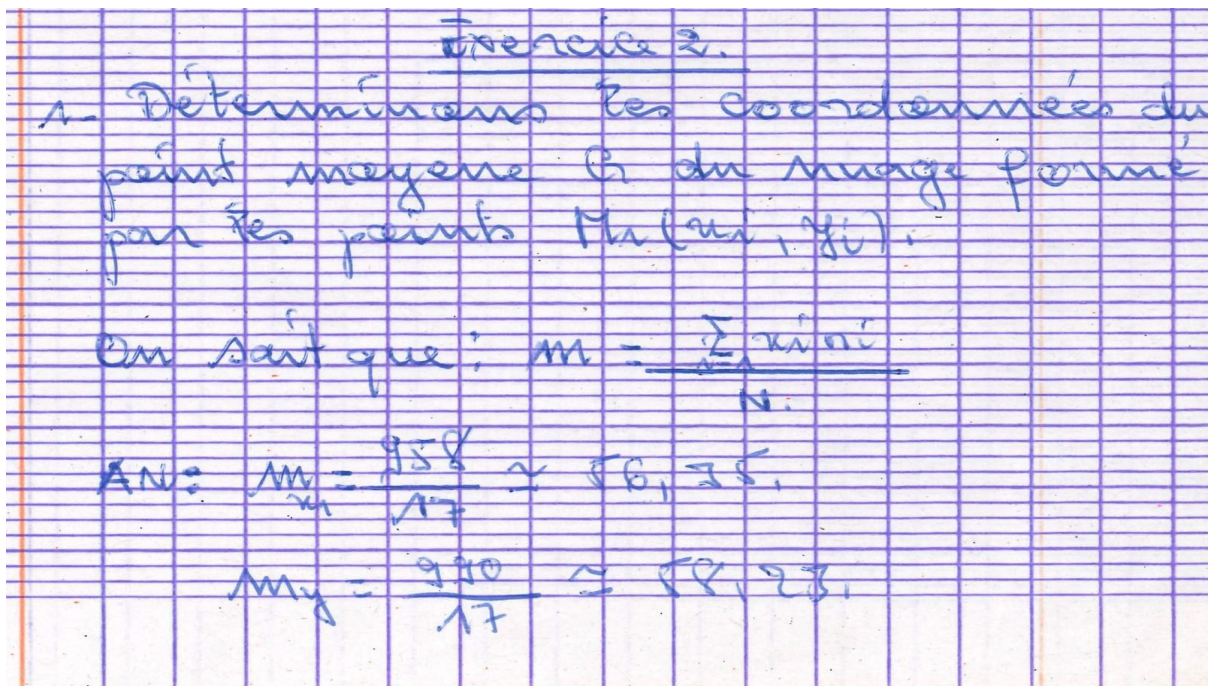 Exercice 2.
1- Déterminons les coordonnées du
point moyene G du nuage formé
par les points Mi (xi, yi).
On sait que : m = Σ i=1 xi ni / N.
AN: m x1 = 958 / 17 ≃ 56,35.
my = 990 / 17 ≃ 58,23.